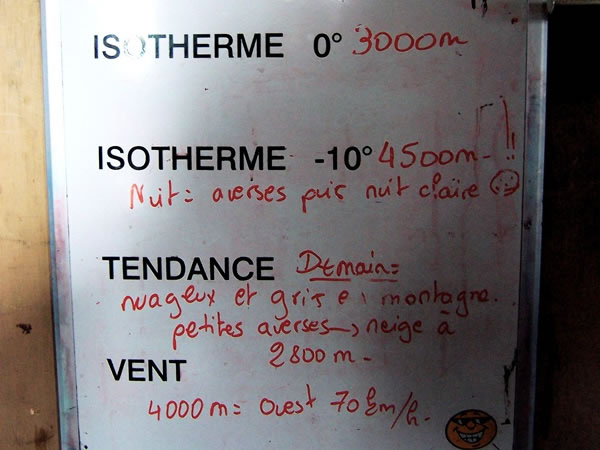 ISOTHERME 0° 3000m
ISOTHERME -10° 4500m- !!
Nuit = averses puis nuit claire
TENDANCE Demain =
nuageux et gris en montagne.
petites averses → neige à
2800 m -
VENT
4000 m = Ouest 70 km/h.